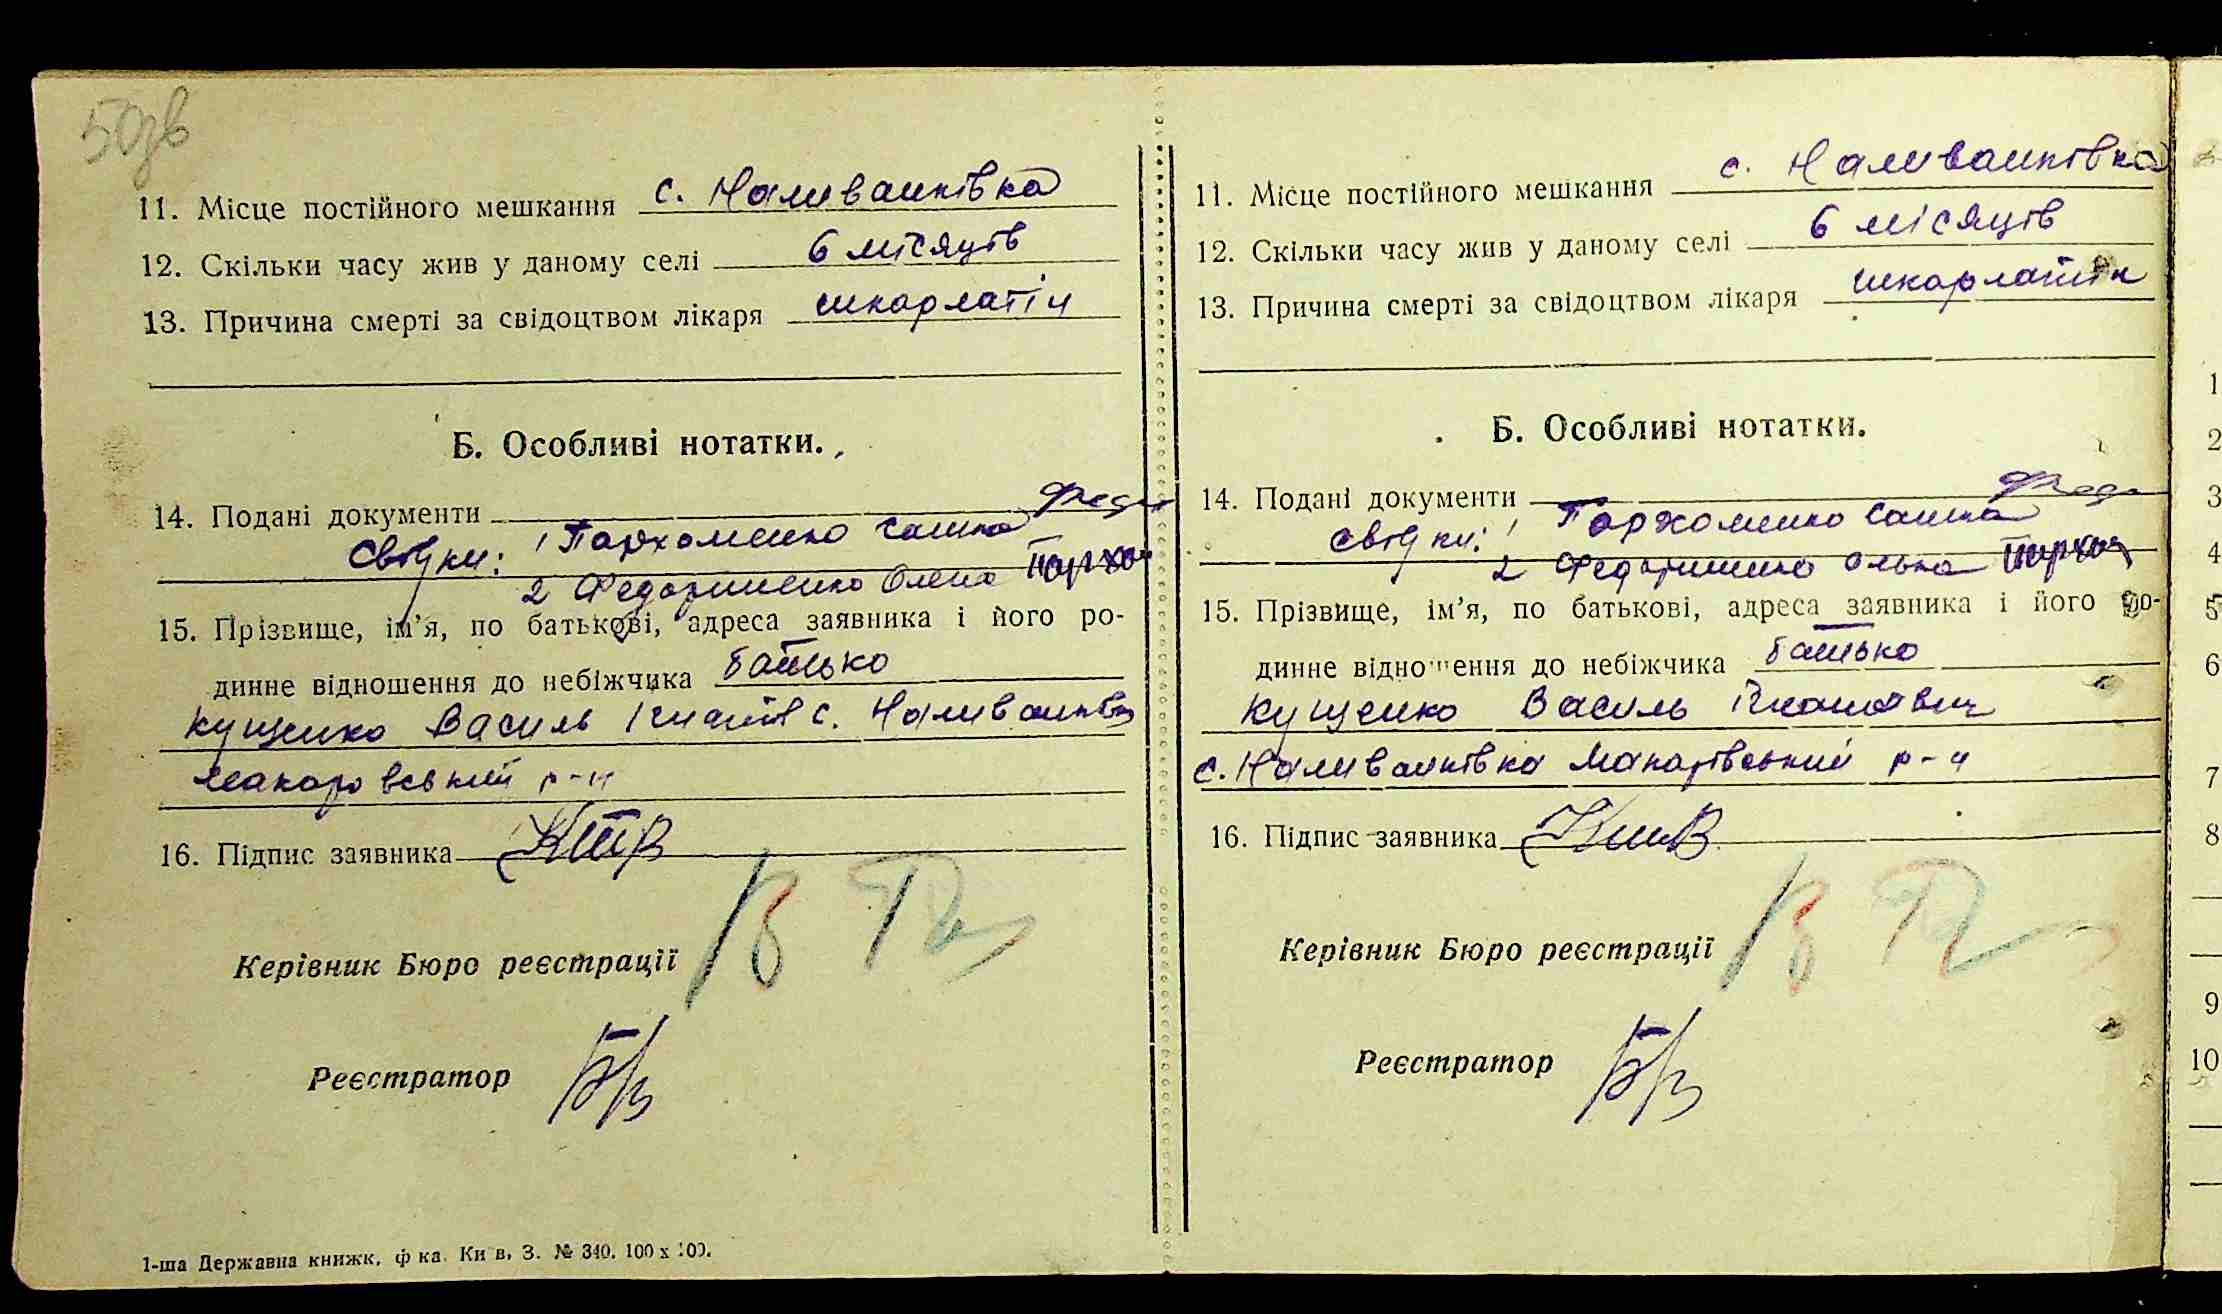 50зв
11. Місце постійного мешкання с. Наливайківка
12. Скільки часу жив у даному селі 6 місяців
13. Причина смерті за свідоцтвом лікаря шкарлатін
Б. Особливі нотатки.
14. Подані документи
Свідки: 1 Пархоменко Сашка
2 Федоришенко Олена Пархом
15. Прізвище, ім'я, по батькові, адреса заявника і його ро-
динне відношення до небіжчика батько
Кущенко Василь Ігнатів с. Наливайківка
Макаровський р-н
16. Підпис заявника
Керівник Бюро реєстрації
Реєстратор
1-ша Державна книжк. ф ка. Ки в. З. № 340. 100 х 100.
11. Місце постійного мешкання с. Наливайківка
12. Скільки часу жив у даному селі 6 місяців
13. Причина смерті за свідоцтвом лікаря шкарлатін
Б. Особливі нотатки.
14. Подані документи
Свідки: 1 Пархоменко Сашка
2 Федоришенко Олена Пархом
15. Прізвище, ім'я, по батькові, адреса заявника і його ро-
динне відношення до небіжчика батько
Кущенко Василь Ігнатович
с. Наливайківка Макарівський р-н
16. Підпис заявника
Керівник Бюро реєстрації
Реєстратор
1
2
3
4
5
6
7
8
9
10